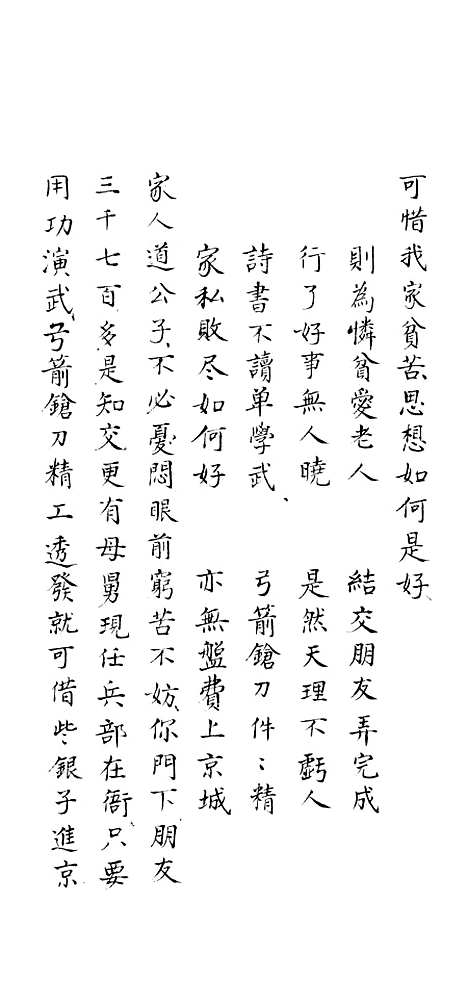 可惜我家貧苦思想如何是好、
則為憐貧愛老人 結交朋友弄完成
行了好事無人曉 是然天理不虧人
詩書不讀单學武、 弓箭鎗刀件〻精
家私敗尽如何好 亦無盤費上京城
家人道公子、不必憂悶眼前窮苦不妨、你門下朋友
三千七百多是知交更有母舅現任兵部在衙、只要
用功演武、弓箭鎗刀精工透發就可借些銀子進京、